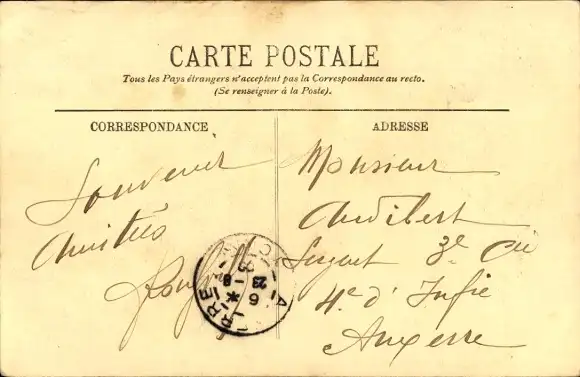 CARTE POSTALE
Tous les Pays étrangers n'acceptent pas la Correspondance au recto.
(Se renseigner à la Poste).
CORRESPONDANCE
ADRESSE
Souvenir
Amitiés
Monsieur
Audibert
Sergent 3e Cie
4e d'Infie
Auxerre